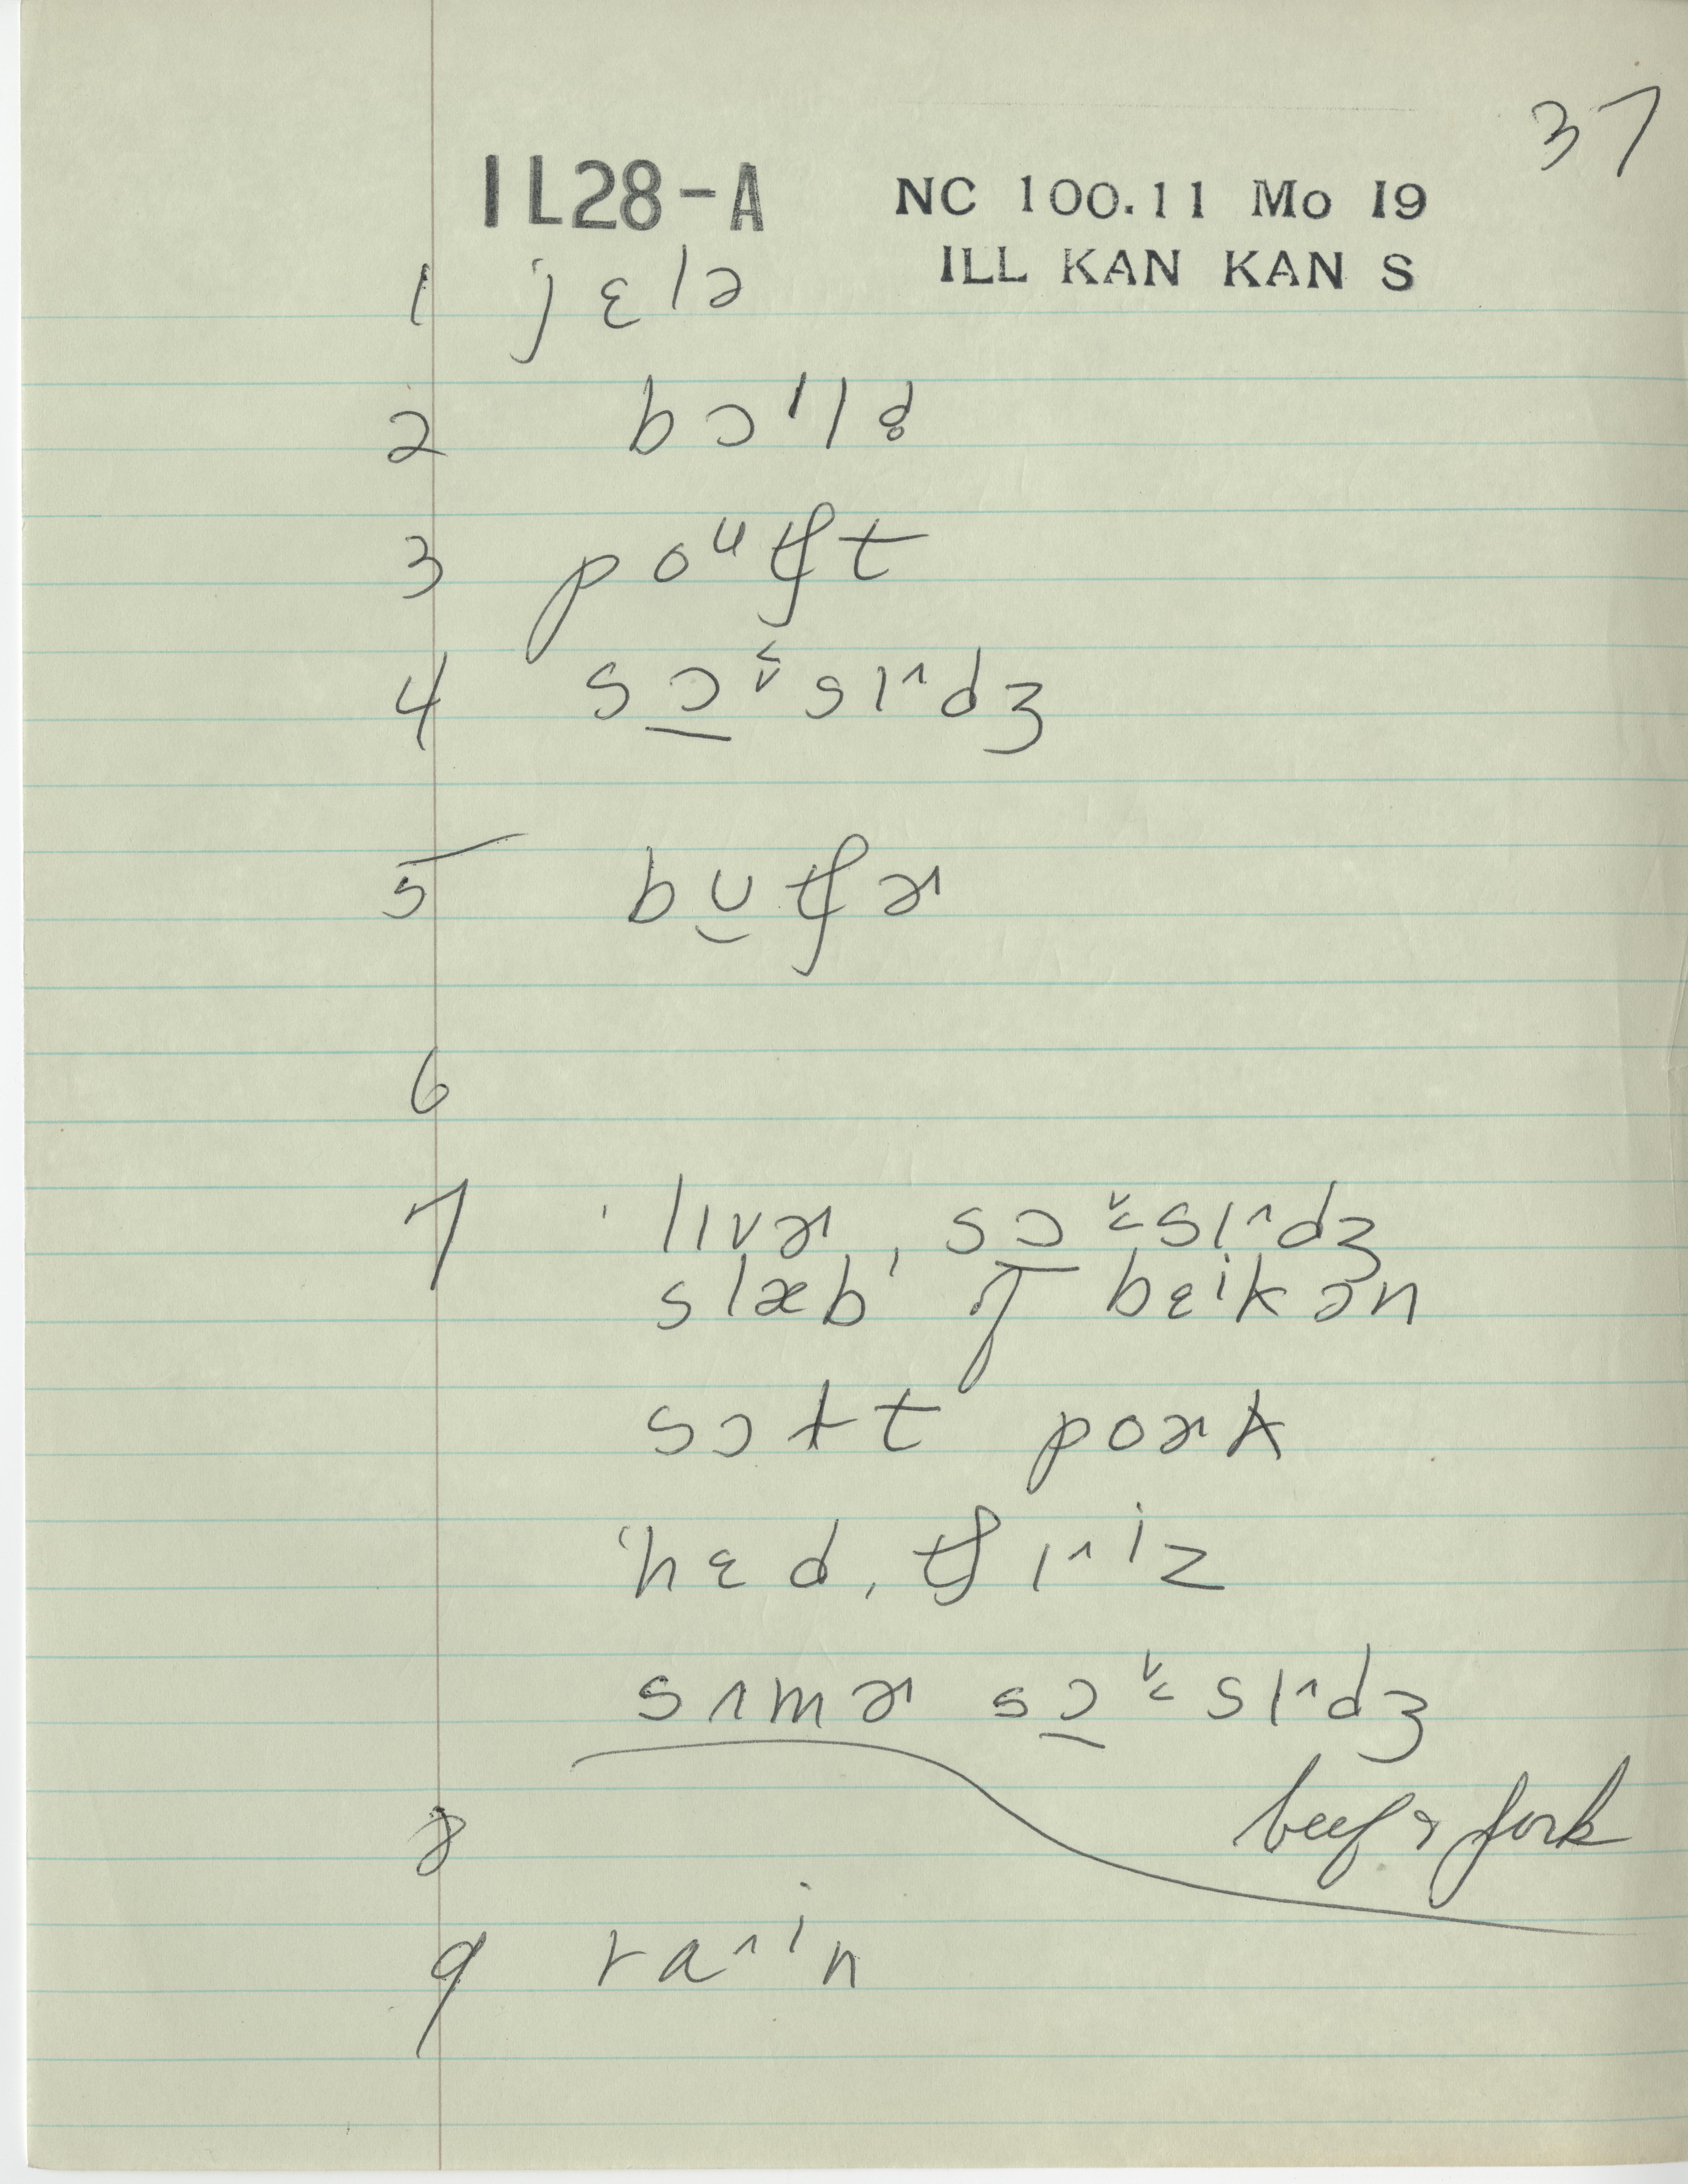 37
IL28-A NC 100.11 Mo I9
ILL KAN KAN S
1 jɛlə
2 bɔᶦld̥
3 poᵘʧt
4 sɔ̱ˇ˂sɪ^dʒ
5 bʊ̮ʧɚ
6
7 ˈlɪvɚˌsɔ̱ˇ˂sɪ^dʒ
slæb ə bɛⁱkən
sɔɫt poɚk
ˈhɛdˌʧɪ^ⁱz
sʌmɚ sɔ̱ˇ˂sɪ^dʒ
beef & pork
8
9 ra^ⁱn